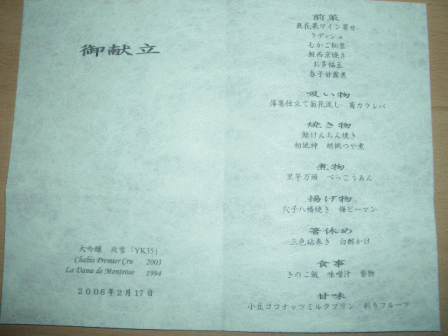 御献立
大吟醸 放雪「YK35」
Chablis Premier Cru 2003
La Dame de Montrose 1994
2006年2月17日
前菜
無花果ワイン寄せ
ラディッシュ
むかご松葉
鮭西京焼き
お多福豆
春子甘露煮
吸い物
薄葛仕立て菊花流し
焼き物
鮭けんちん焼き
胡桃つや煮
煮物
里芋万頭 べっこうあん
揚げ物
穴子八幡焼き 梅ピーマン
箸休め
三色砧巻き 白酢かけ
食事
きのこ飯 味噌汁 香物
甘味
小豆ココナッツミルクプリン 彩りフルーツ